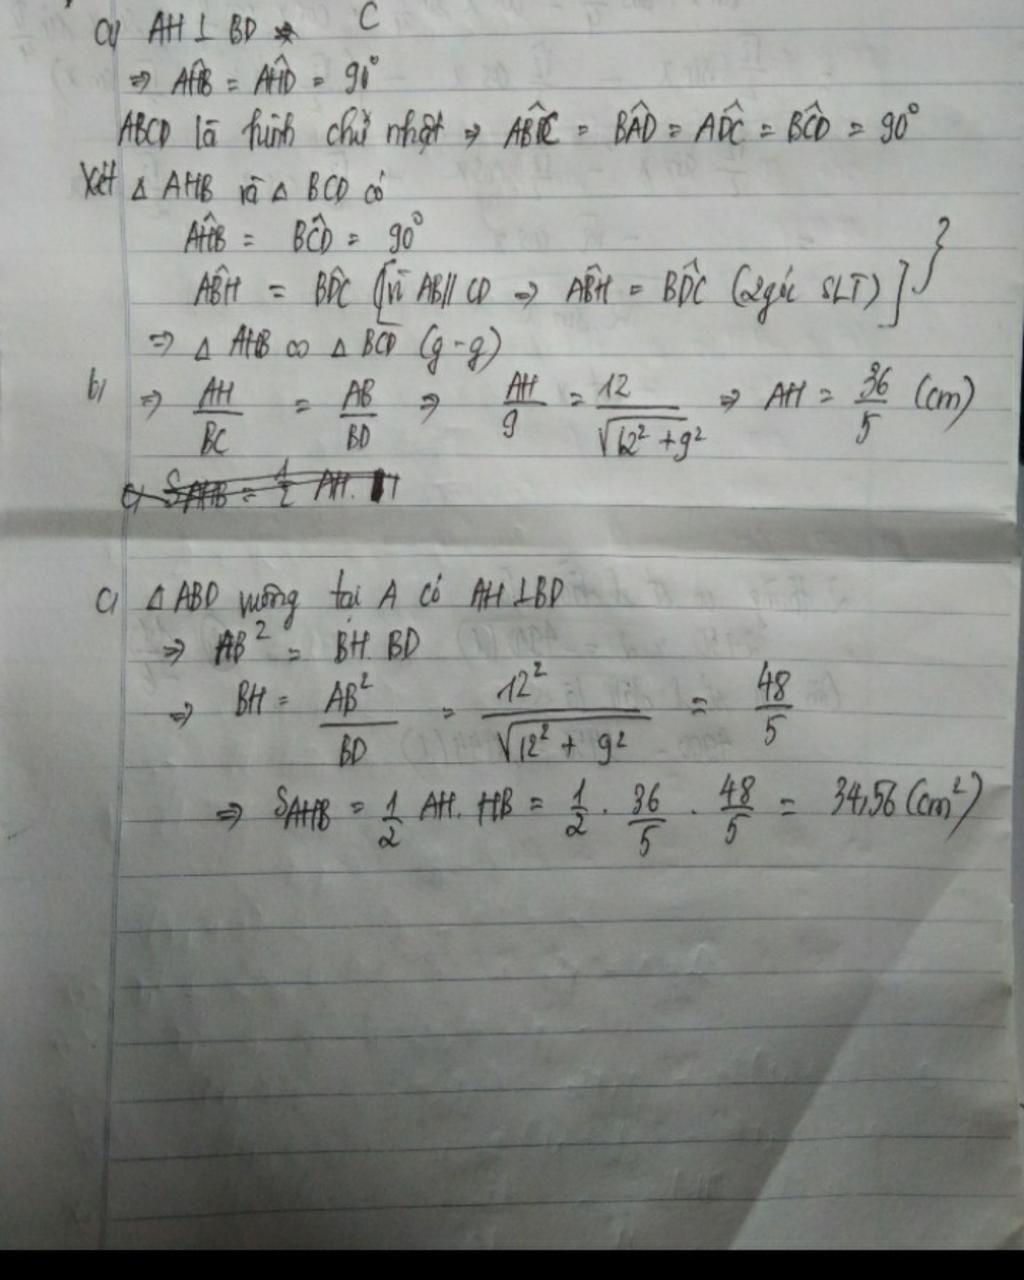 a) AH ⊥ BD C
⇒ AĤB = AĤD = 90°
ABCD là hình chữ nhật ⇒ AB̂C = BÂD = AD̂C = BĈD = 90°
Xét Δ AHB và Δ BCD có
AĤB = BĈD = 90°
AB̂H = BD̂C [vì AB // CD ⇒ AB̂H = BD̂C (2 góc SLT)] }
⇒ Δ AHB ∽ Δ BCD (g-g)
b) ⇒ AH/BC = AB/BD ⇒ AH/9 = 12/√(12² + 9²) ⇒ AH = 36/5 (cm)
c) S_AHB = 1/2 AH. H
c) Δ ABD vuông tại A có AH ⊥ BD
⇒ AB² = BH. BD
⇒ BH = AB²/BD = 12²/√(12² + 9²) = 48/5
⇒ S_AHB = 1/2 AH. HB = 1/2 . 36/5 . 48/5 = 34,56 (cm²)